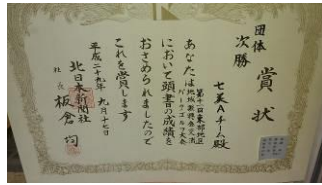 賞状
団体
次勝
七美Aチーム殿
あなたは
において頭書の成績を
おさめられましたので
これを賞します
平成二十九年 九月十七日
北日本新聞社
社長 板倉 均